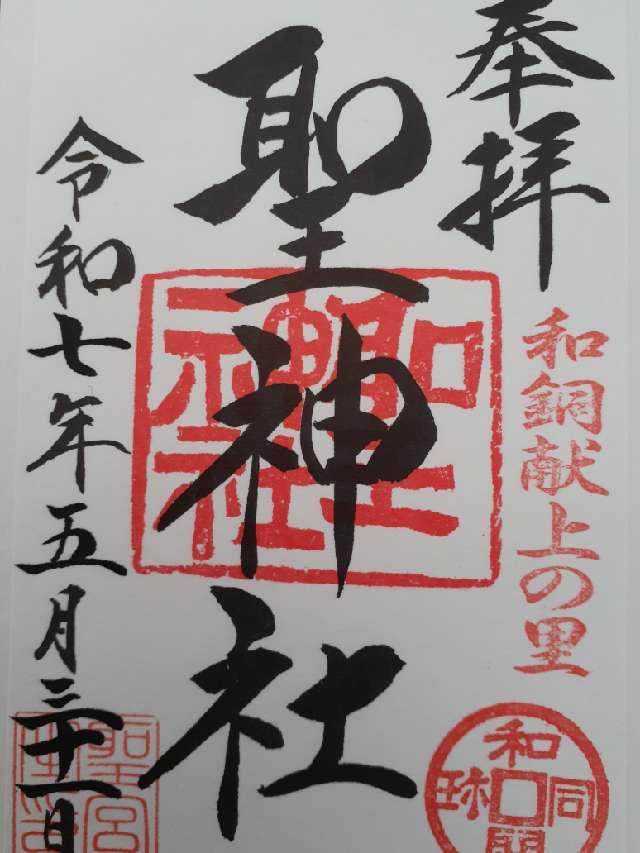 奉拝
和銅献上の里
聖神社
令和七年五月三十一日
聖神社
和同開珎